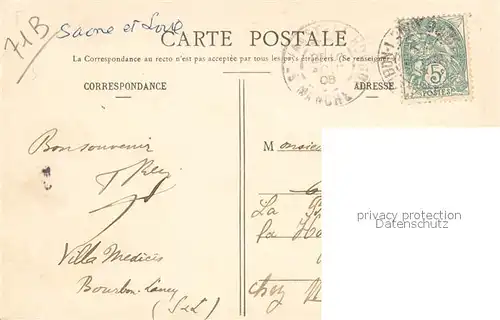 71B
Saone et Loire
CARTE POSTALE
La Correspondance au recto n'est pas acceptée par tous les pays étrangers. (Se renseigner
CORRESPONDANCE
ADRESSE
08
MANCHE
5c
POSTES
Bon souvenir
Villa Medicis
Bourbon-Lancy
(S&L)
Monsieur
La
la
chez
privacy protection
Datenschutz